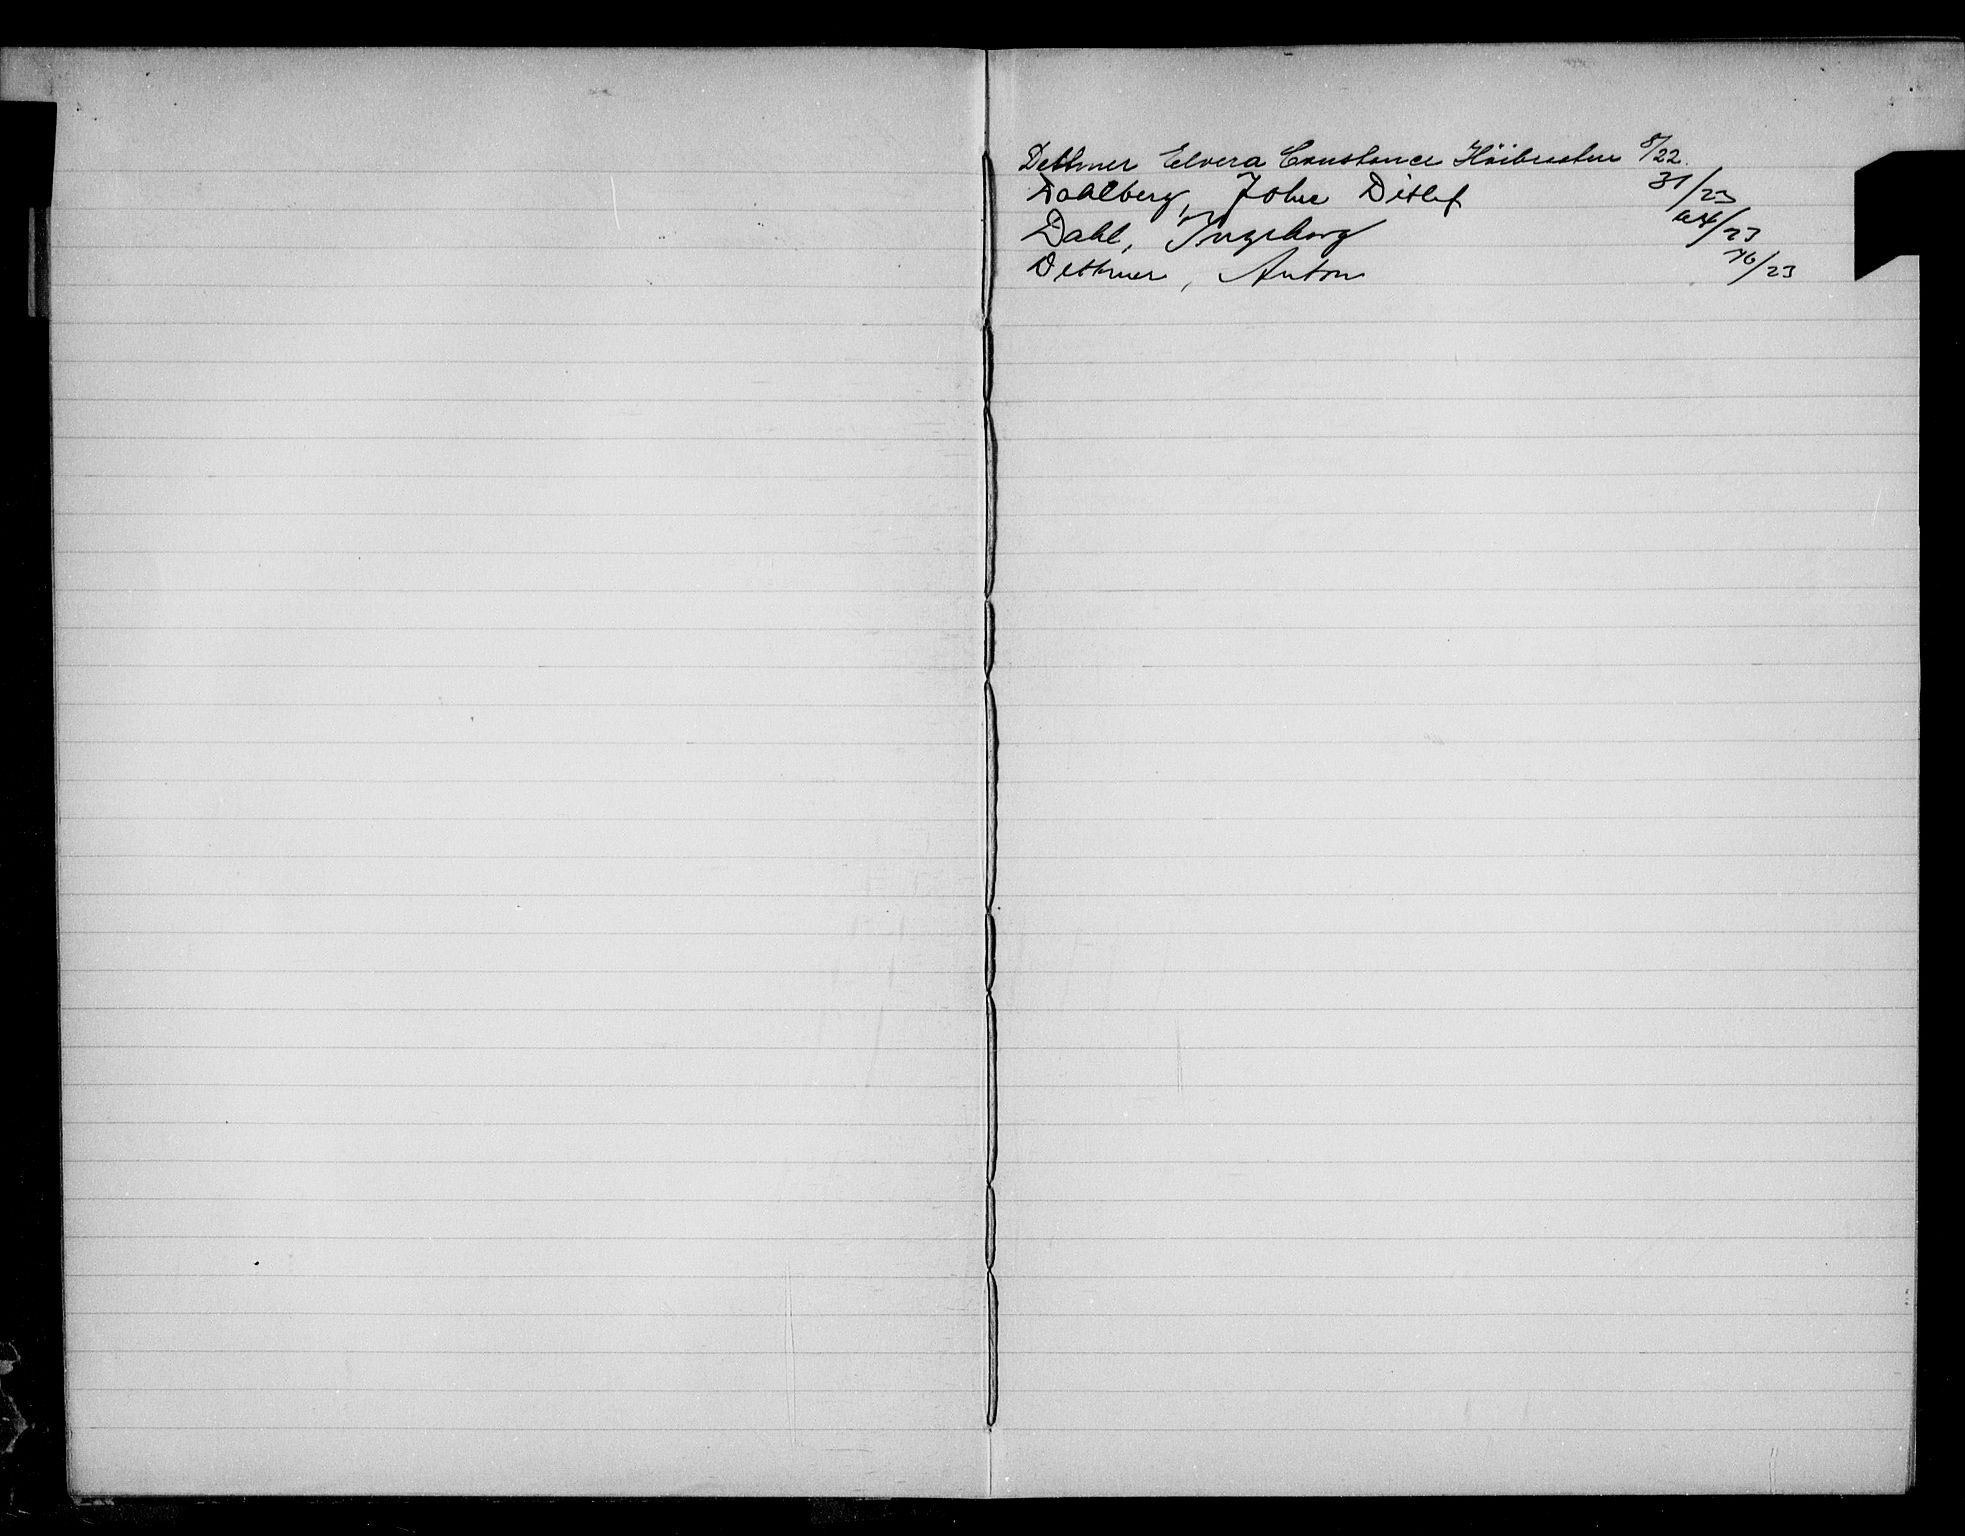 Dethmer Elvera Constance 8/22.
Dahlberg, John Ditlef 31/23
Dahl, Ingeborg 64/23
Dethmer, Anton 76/23